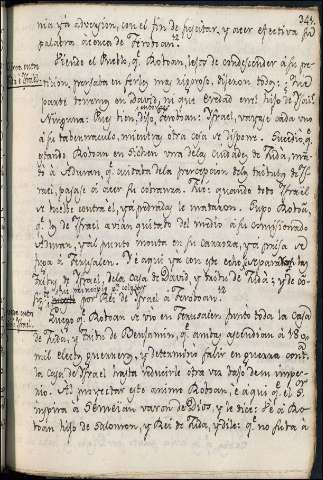 343.
nia ya adversion, con el fin de suscitar, y acer efectiva su
palabra acerca de Jeroboan.
Viendo el Pueblo, q.e Roboan, lejos de condescender á su pe-
ticion, pensaba en serles mas rigoroso, dijeron todos: Que
parte tenemos en David, ni que eredad en el hijo de Isai?
Ninguna: Pues bien, dijo, Jeroboan: Israel, vayase cada uno
á su tabernaculo, mientras otra cosa se dispone. Sucedió q.e
estando Roboan en Sichen una de las ciudades de Juda, man-
dó á Aduran, q.e cuidaba de la percepcion de los tributos de Is-
rael, pasase á acer su cobranza. Fue: quando todo Israel
se buelbe contra el, y á pedradas le mataron. Supo Roboan,
q.e los de Israel avian quitado del medio á su comisionado
Aduran, y al punto monta en su carroza, y á prisa se
fuga á Jerusalen. Y é aqui ya con este echo separadas las
tribus de Israel, de la casa de David, y tribu de Juda; y de co-
por Rei de Israel a Jeroboan.
Luego q.e Roboan se vio en Jerusalen junto toda la Casa
de Juda, y tribu de Benjamin, q.e ambas ascendian á 180
mil electos guerreros, y determino salir en guerra contra
la casa de Israel hasta reducirle otra vez bajo de su impe-
rio. Al proyectar este animo Roboan, é aqui q.e el S.r
inspira á Semeian varon de Dios, y le dice: Vé á Ro-
boan hijo de Salomon, y Rei de Juda, y dile: q.e no suba á